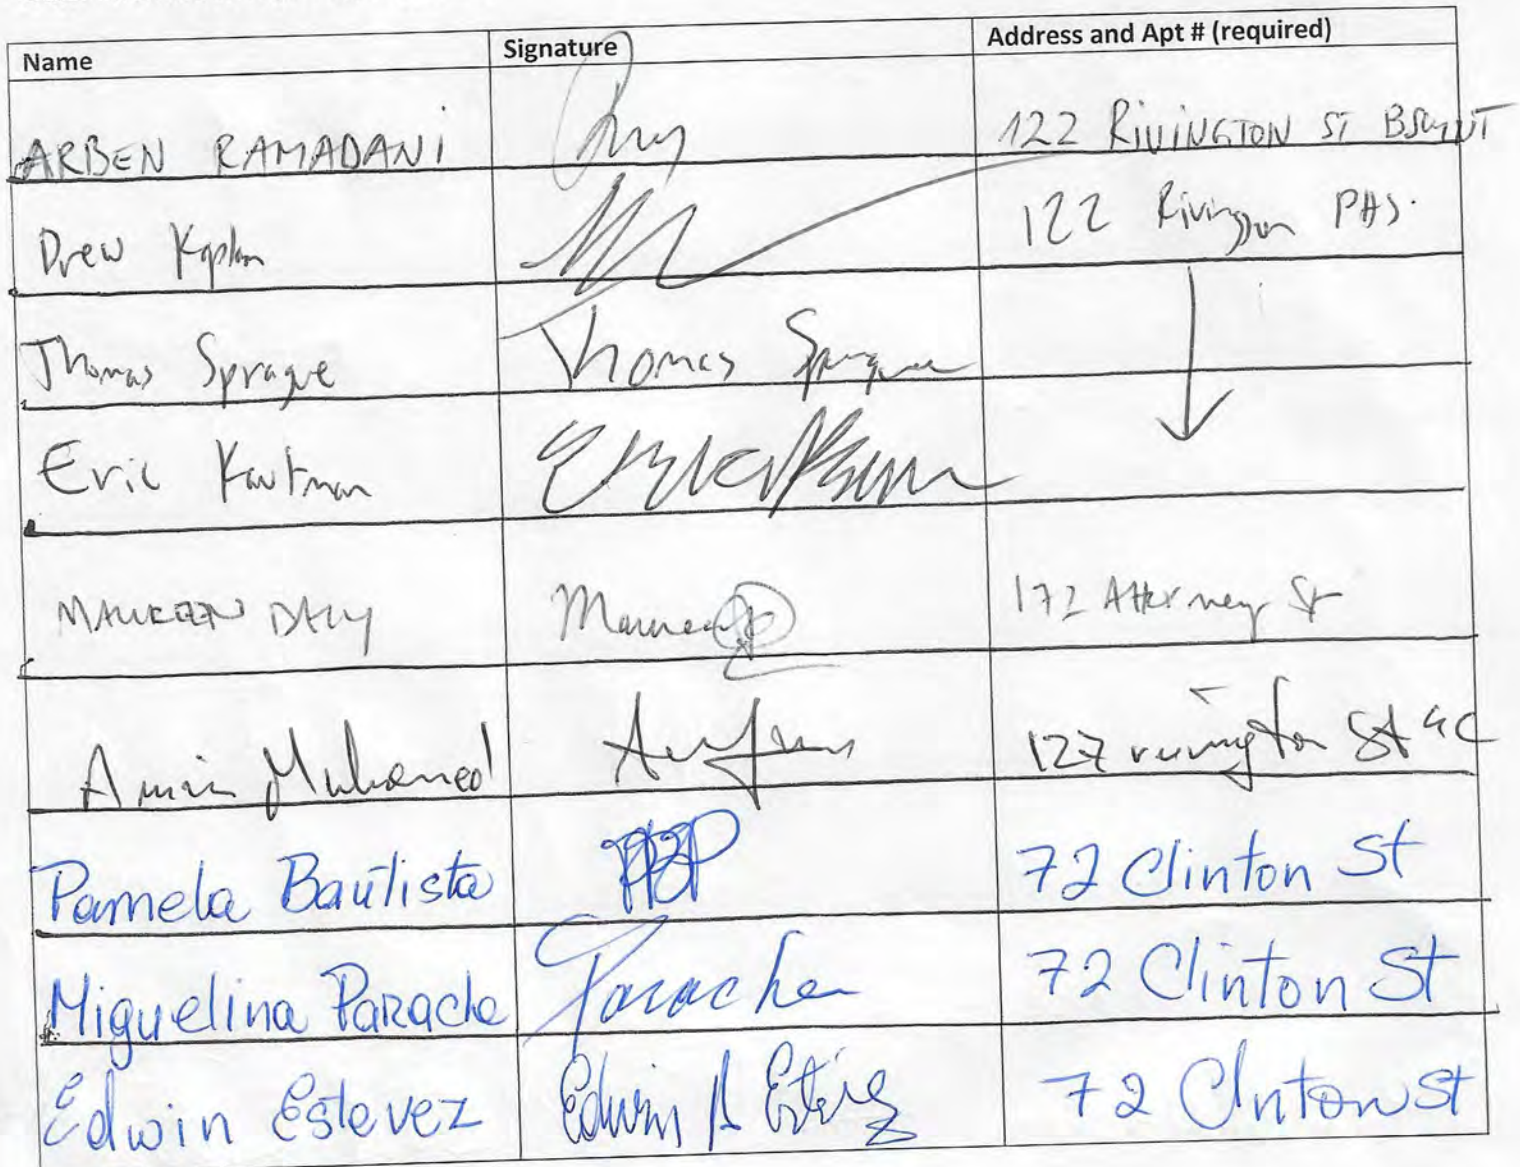 Name Signature Address and Apt # (required)
ARBEN RAMADANI 122 RIVINGTON ST BSMNT
Drew Kaplan 122 Rivington
Thomas Sprague Thomas Sprague
Eric
MAUREEN DALY Maureen 172 Attorney St
Amin Mohamed 127 rivington St 4C
Pamela Bautista PBP 72 Clinton St
Miguelina Parache Parache 72 Clinton St
Edwin Estevez Edwin A Estévez 72 Clnton St